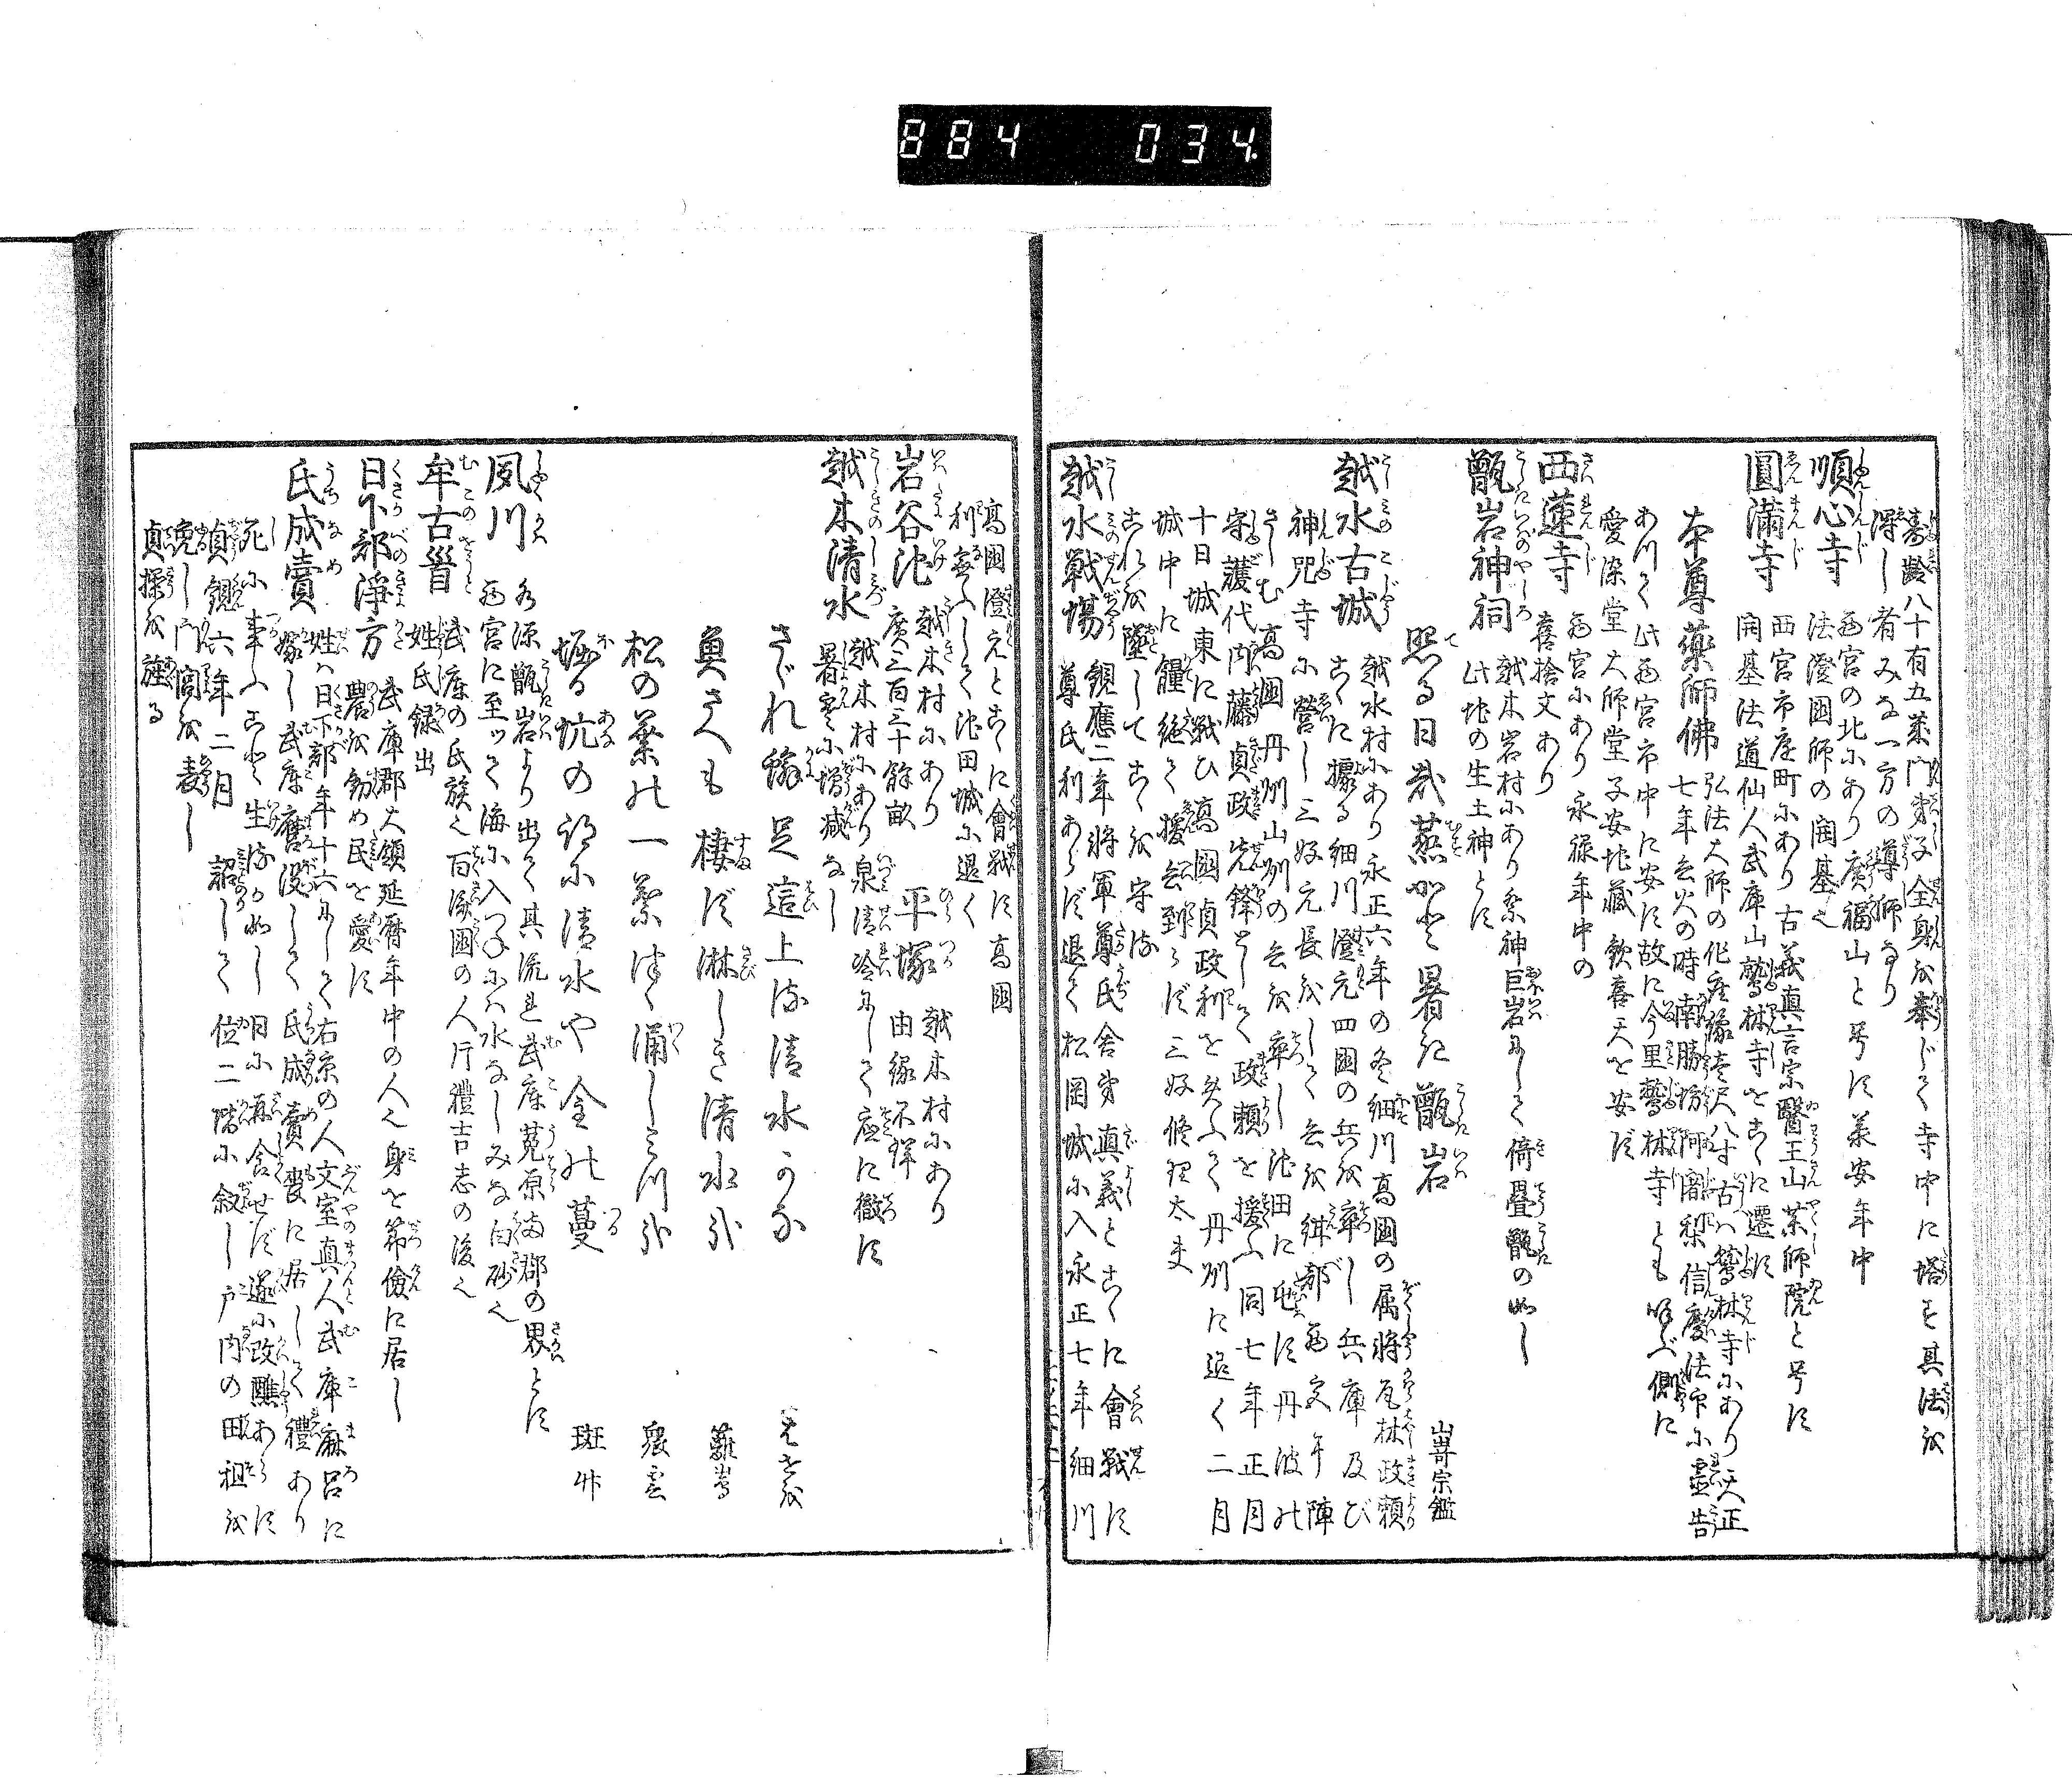 884 034
壽齢八十有五葉門弟子全身を奉じて寺中に塔す其法を
得し者みな一方の導師なり
順心寺 西宮の北にあり廣福山と号す葉安年中
法澄国師の開基也
圓満寺 西宮市庭町にあり古義真言宗醫王山薬師院と号す
開基法道仙人武庫山鷲林寺をこゝに遷す
本尊薬師佛 弘法大師の作座像壱尺八寸古ハ鷲林寺にあり天正
七年兵火の時南勝坊阿闍梨信慶法印に霊告
ありて此西宮市中に安す故に今里鷲林寺とも呼ぶ側に
愛染堂大師堂子安地蔵歓喜天を安ず
西蓮寺 西宮にあり永禄年中の
喜捨文あり
甑岩神祠 越木岩村にあり祭神巨岩にして倚畳甑の如し
此地の生土神とす
照る日哉蒸かと暑き甑岩 山崎宗鑑
越水古城 越水村にあり永正六年の冬細川高國の属将瓦林政頼
こゝに據る細川澄元四國の兵を率し兵庫及び
神咒寺に營し三好元長をして兵を 陣
さしむ高國丹州山州の兵を率し池田に屯す丹波の
守護代内藤貞政先鋒として政頼を援ふ同七年正月
十日城東に戦ひ高國貞政利を失ふて丹州に退く二月
城中に糧絶て援兵到らず三好修理太夫
これを墜してこゝを守る
越水戦場 観應二年将軍尊氏舎弟直義とこゝに會戦す
尊氏利あらず退て松岡城に入永正七年細川
高國澄元とこゝに會戦す高國
利無ふして池田城に退く
岩谷池 越木村にあり
廣三百三十餘畝
平塚 越木村にあり
由縁不詳
越木清水 越木村にあり泉清冷にして底に徹す
暑寒に増減なし
さゞれ蟹足這上る清水かな はせを
奥さへも棲ず淋しき清水哉 蘿嵩
松の葉の一葉づゝ涌しミつ哉
堀る坑の許に清水や金の蔓 斑竹
夙川 水源甑岩より出て其流れ武庫菟原両郡の界とす
西宮に至ッて海に入つねにハ水なしみな白砂也
牟古首 武庫の氏族也百濟國の人片禮吉志の後也
姓氏録出
日下部浄方 武庫郡大領延暦年中の人也身を節儉に居し
農を勤め民を愛す
氏成賣 姓ハ日下部年十六にして右京の人文室真人武庫麻呂に
嫁し武庫麿没して氏成賣喪に居して禮あり
死に事ふこと生るが如し 再 せず遂に改醮あらず
貞観六年二月詔して位二階に叙し戸内の田租を
免し門閭を表し
貞操を旌る